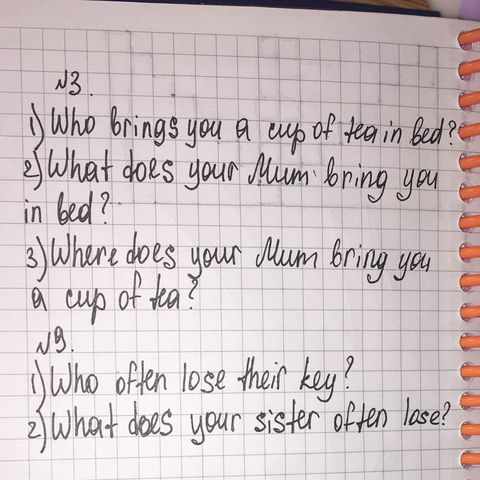 №3.
1) Who brings you a cup of tea in bed?
2) What does your Mum bring you
in bed?
3) Where does your Mum bring you
a cup of tea?
№9.
1) Who often lose their key?
2) What does your sister often lose?